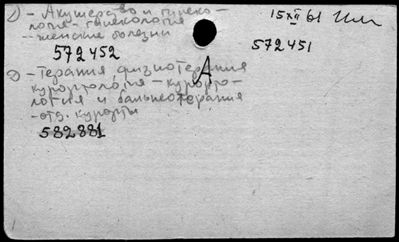 1) - Акушерство и гинеко-
логия - гинекология
- женские болезни
15 XII 61
572452
572451
2) - Терапия физиотерапия
А
курортология - курорто-
логия и бальнеотерапия
- отд. курорты
582881